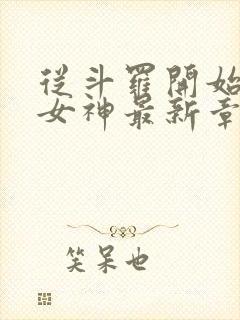 從斗羅開始
女神最新章
笑呆也